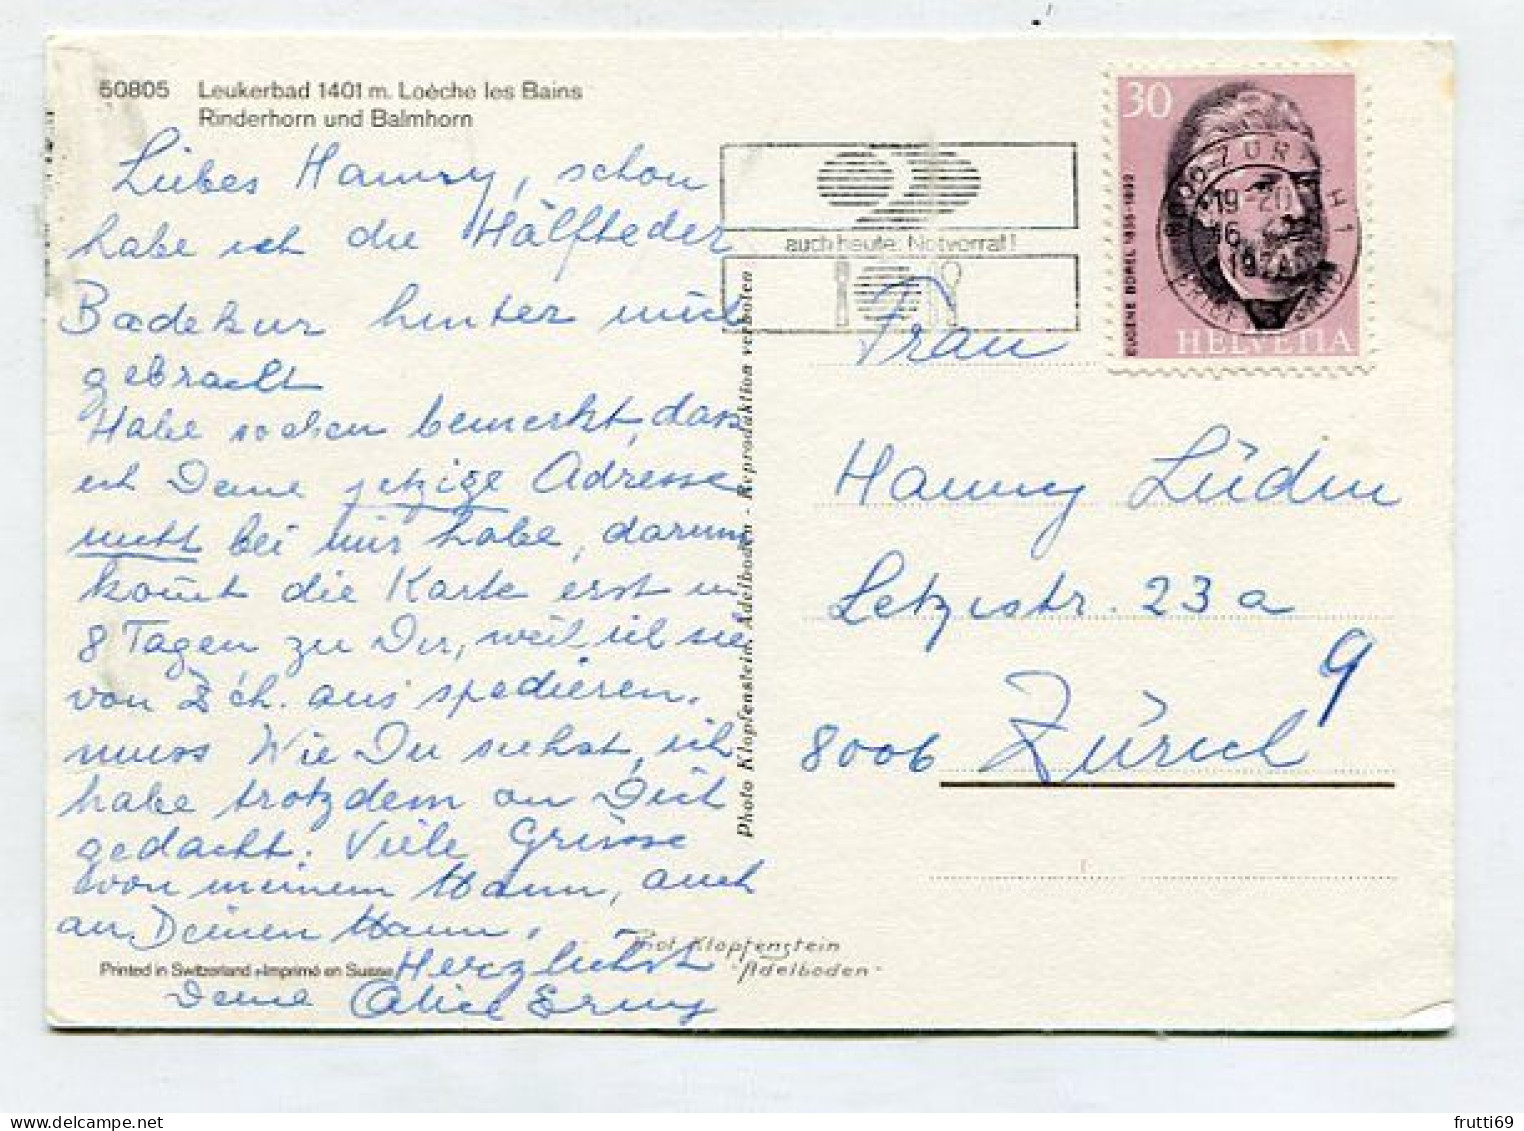 50805 Leukerbad 1401 m. Loèche les Bains
Rinderhorn und Balmhorn
Liebes Hanny, schon
habe ich die Hälfte der
Badekur hinter mich
gebracht
Habe soeben bemerkt, dass
ich Deine jetzige Adresse
nicht bei mir habe, darum
kom̄t die Karte erst in
8 Tagen zu Dir, weil ich sie
von Zch. aus spedieren.
muss Wie Du siehst, ich
habe trotzdem an Dich
gedacht. Viele Grüsse
von meinem Mann, auch
an Deinen Mann,
Herzlichst
Deine Alice Erny
Printed in Switzerland - Imprimé en Suisse
Phot Klopfenstein
"Adelboden"
Photo Klopfenstein, Adelboden - Reproduktion verboten
auch heute: Notvorrat!
30
EUGÈNE BOREL 1835-1892
HELVETIA
19-20
1974
Frau
Hanny Lüdin
Letzistr. 23 a
8006 Zürich 9
frutti69